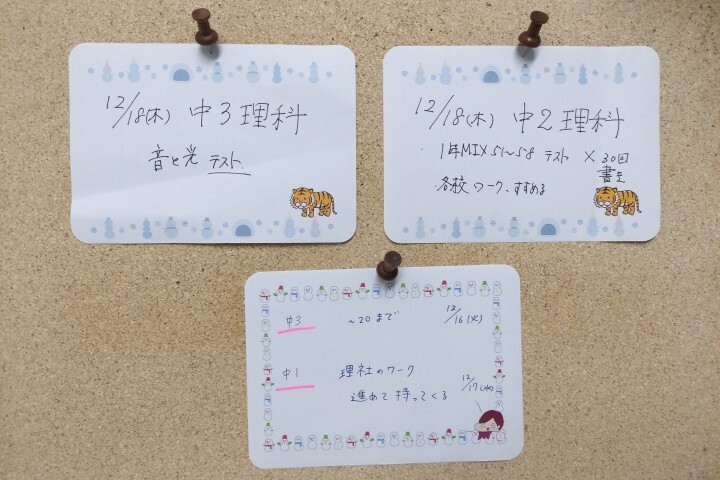 12/18(木) 中3理科
音と光 テスト
12/18(木) 中2理科
・1年MIX 51〜58 テスト × 30回
書き
・各校ワーク、すすめる
中3 〜20まで 12/16(火)
中1 理社のワーク
進めて持ってくる 12/17(水)